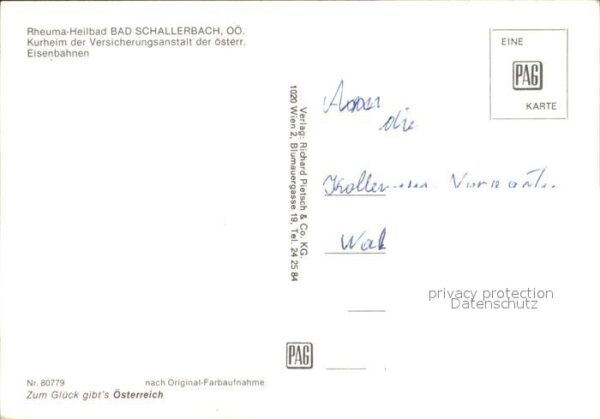 Rheuma-Heilbad BAD SCHALLERBACH, OÖ.
Kurheim der Versicherungsanstalt der österr.
Eisenbahnen
EINE
PAG
KARTE
Verlag: Richard Pietsch & Co. KG.
1020 Wien 2, Blumauergasse 19, Tel. 24 25 84
die
privacy protection
Datenschutz
PAG
Nr. 80779 nach Original-Farbaufnahme
Zum Glück gibt's Österreich